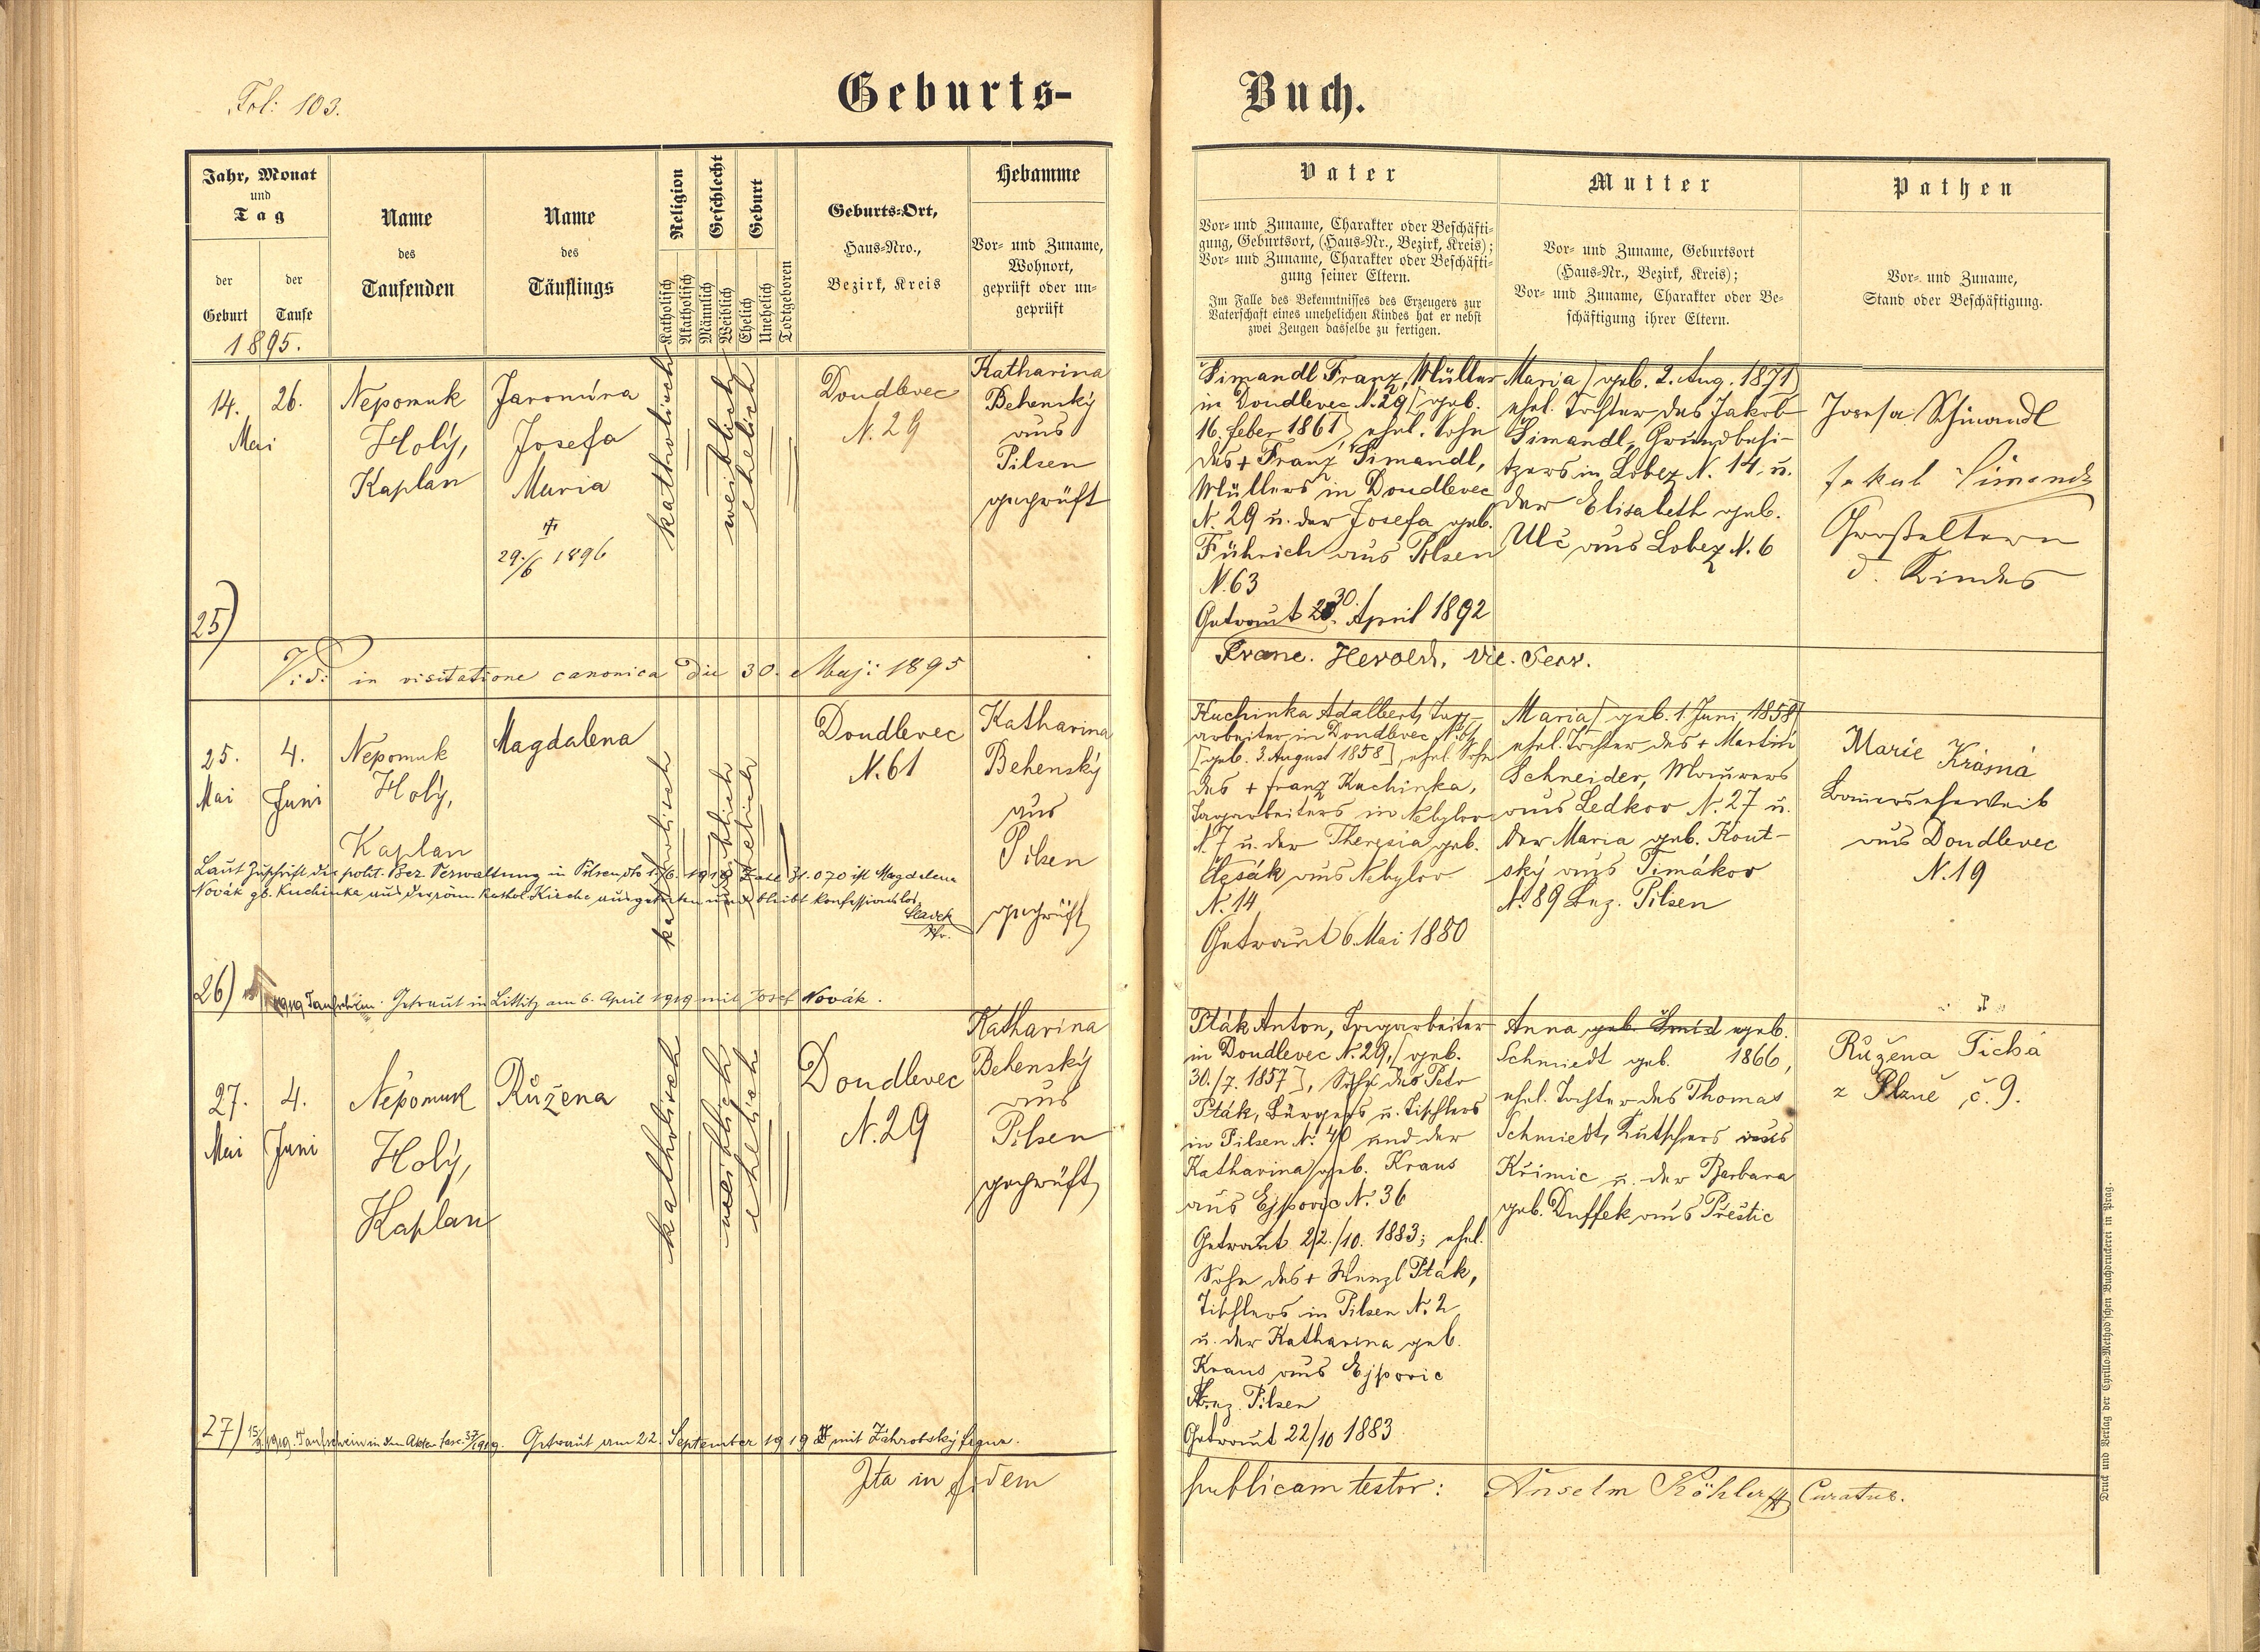 Fol: 103.
Geburts-
Buch.
Jahr, Monat
und
Tag
der
Geburt
der
Taufe
1895.
Name
des
Taufenden
Name
des
Täuflings
Religion
Katholisch
Akatholisch
Geschlecht
Männlich
Weiblich
Geburt
Ehelich
Unehelich
Todtgeboren
Geburts-Ort,
Haus-Nro.,
Bezirk, Kreis
Hebamme
Vor- und Zuname,
Wohnort,
geprüft oder un-
geprüft
Vater
Vor- und Zuname, Charakter oder Beschäfti-
gung, Geburtsort, (Haus-Nr., Bezirk, Kreis);
Vor- und Zuname, Charakter oder Beschäfti-
gung seiner Eltern.
Im Falle des Bekenntnisses des Erzeugers zur
Vaterschaft eines unehelichen Kindes hat er nebst
zwei Zeugen dasselbe zu fertigen.
Mutter
Vor- und Zuname, Geburtsort
(Haus-Nr., Bezirk, Kreis);
Vor- und Zuname, Charakter oder Be-
schäftigung ihrer Eltern.
Pathen
Vor- und Zuname,
Stand oder Beschäftigung.
14.
26.
Mai
Nepomuk
Holý,
Kaplan
Jaromíra
Josefa
Maria
29./6 1896
katholisch
weiblich
ehelich
Doudlevec
N. 29
Katharina
Behenský
aus
Pilsen
geprüft
Simandl Franz, Müller
in Doudlevec N. 29 [geb.
16. Feber 1861], ehel. Sohn
des + Franz Simandl,
Müllers in Doudlevec
N. 29 u. der Josefa geb.
Führich aus Pilsen
N. 63
Getraut 30. April 1892
Maria [geb. 2. Aug. 1871]
ehel. Tochter des Jakob
Simandl, Grundbesi-
tzers in Lobez N. 14 u.
der Elisabeth geb.
Ulč aus Lobez N. 6
Josefa Schimandl
Jakub Simandl
Großeltern
d. Kindes
25)
Vidi in visitatione canonica die 30. Maji 1895
Franc. Herold, vic. Secr.
25.
Mai
4.
Juni
Nepomuk
Holý,
Kaplan
Magdalena
katholisch
weiblich
ehelich
Doudlevec
N. 61
Katharina
Behenský
aus
Pilsen
geprüft
Kuchinka Adalbert, Tag-
arbeiter in Doudlevec N. 61
[geb. 3. August 1858], ehel. Sohn
des + Franz Kuchinka,
Tagarbeiters in Nebylov
N. 7 u. der Theresia geb.
aus Nebylov
N. 14
Getraut 6. Mai 1880
Maria [geb. 1. Juni 1858]
ehel. Tochter des + Martin
Schneider, Maurers
aus Ledkov N. 27 u.
der Maria geb. Kout-
ský aus Timákov
N. 89 Bez. Pilsen
Marie Krásná
Bauerseheweib
aus Doudlevec
N. 19
Laut Zuschrift der polit. Bez. Verwaltung in Pilsen, Zahl 31.070 ist Magdalena
Novák gb. Kuchinka aus der röm. kathol. Kirche ausgetreten und bleibt konfessionslos.
26)
1919 Taufschein. Getraut in Littitz am 6. April 1919 mit Josef Novák.
27.
Mai
4.
Juni
Nepomuk
Holý,
Kaplan
Růžena
katholisch
weiblich
ehelich
Doudlevec
N. 29
Katharina
Behenský
aus
Pilsen
geprüft
Pták Anton, Tagarbeiter
in Doudlevec N. 29, [geb.
30./7. 1857], Sohn des Petr
Pták, Bürgers u. Tischlers
in Pilsen N. 40 und der
Katharina geb. Kraus
aus Ejpovic N. 36
Getraut 22./10. 1883; ehel.
Sohn des + Wenzl Pták,
Tischlers in Pilsen N. 2
u. der Katharina geb.
Kraus aus Ejpovic
Bez. Pilsen
Getraut 22/10 1883
Anna geb. Šmíd geb.
Schmiedt geb. 1866,
ehel. Tochter des Thomas
Schmiedt, Kutschers aus
Křimic u. der Barbara
geb. Duffek aus Přeštic
Růžena Tichá
z Plzně č. 9.
27) 1919. Taufschein in den Akten fasc. 37/1919. Getraut am 22. September 1919 mit
Ita in fidem
publicam testor: Anselm Köhler Curatus.
Druck und Verlag der Cyrillo-Method'schen Buchdruckerei in Prag.